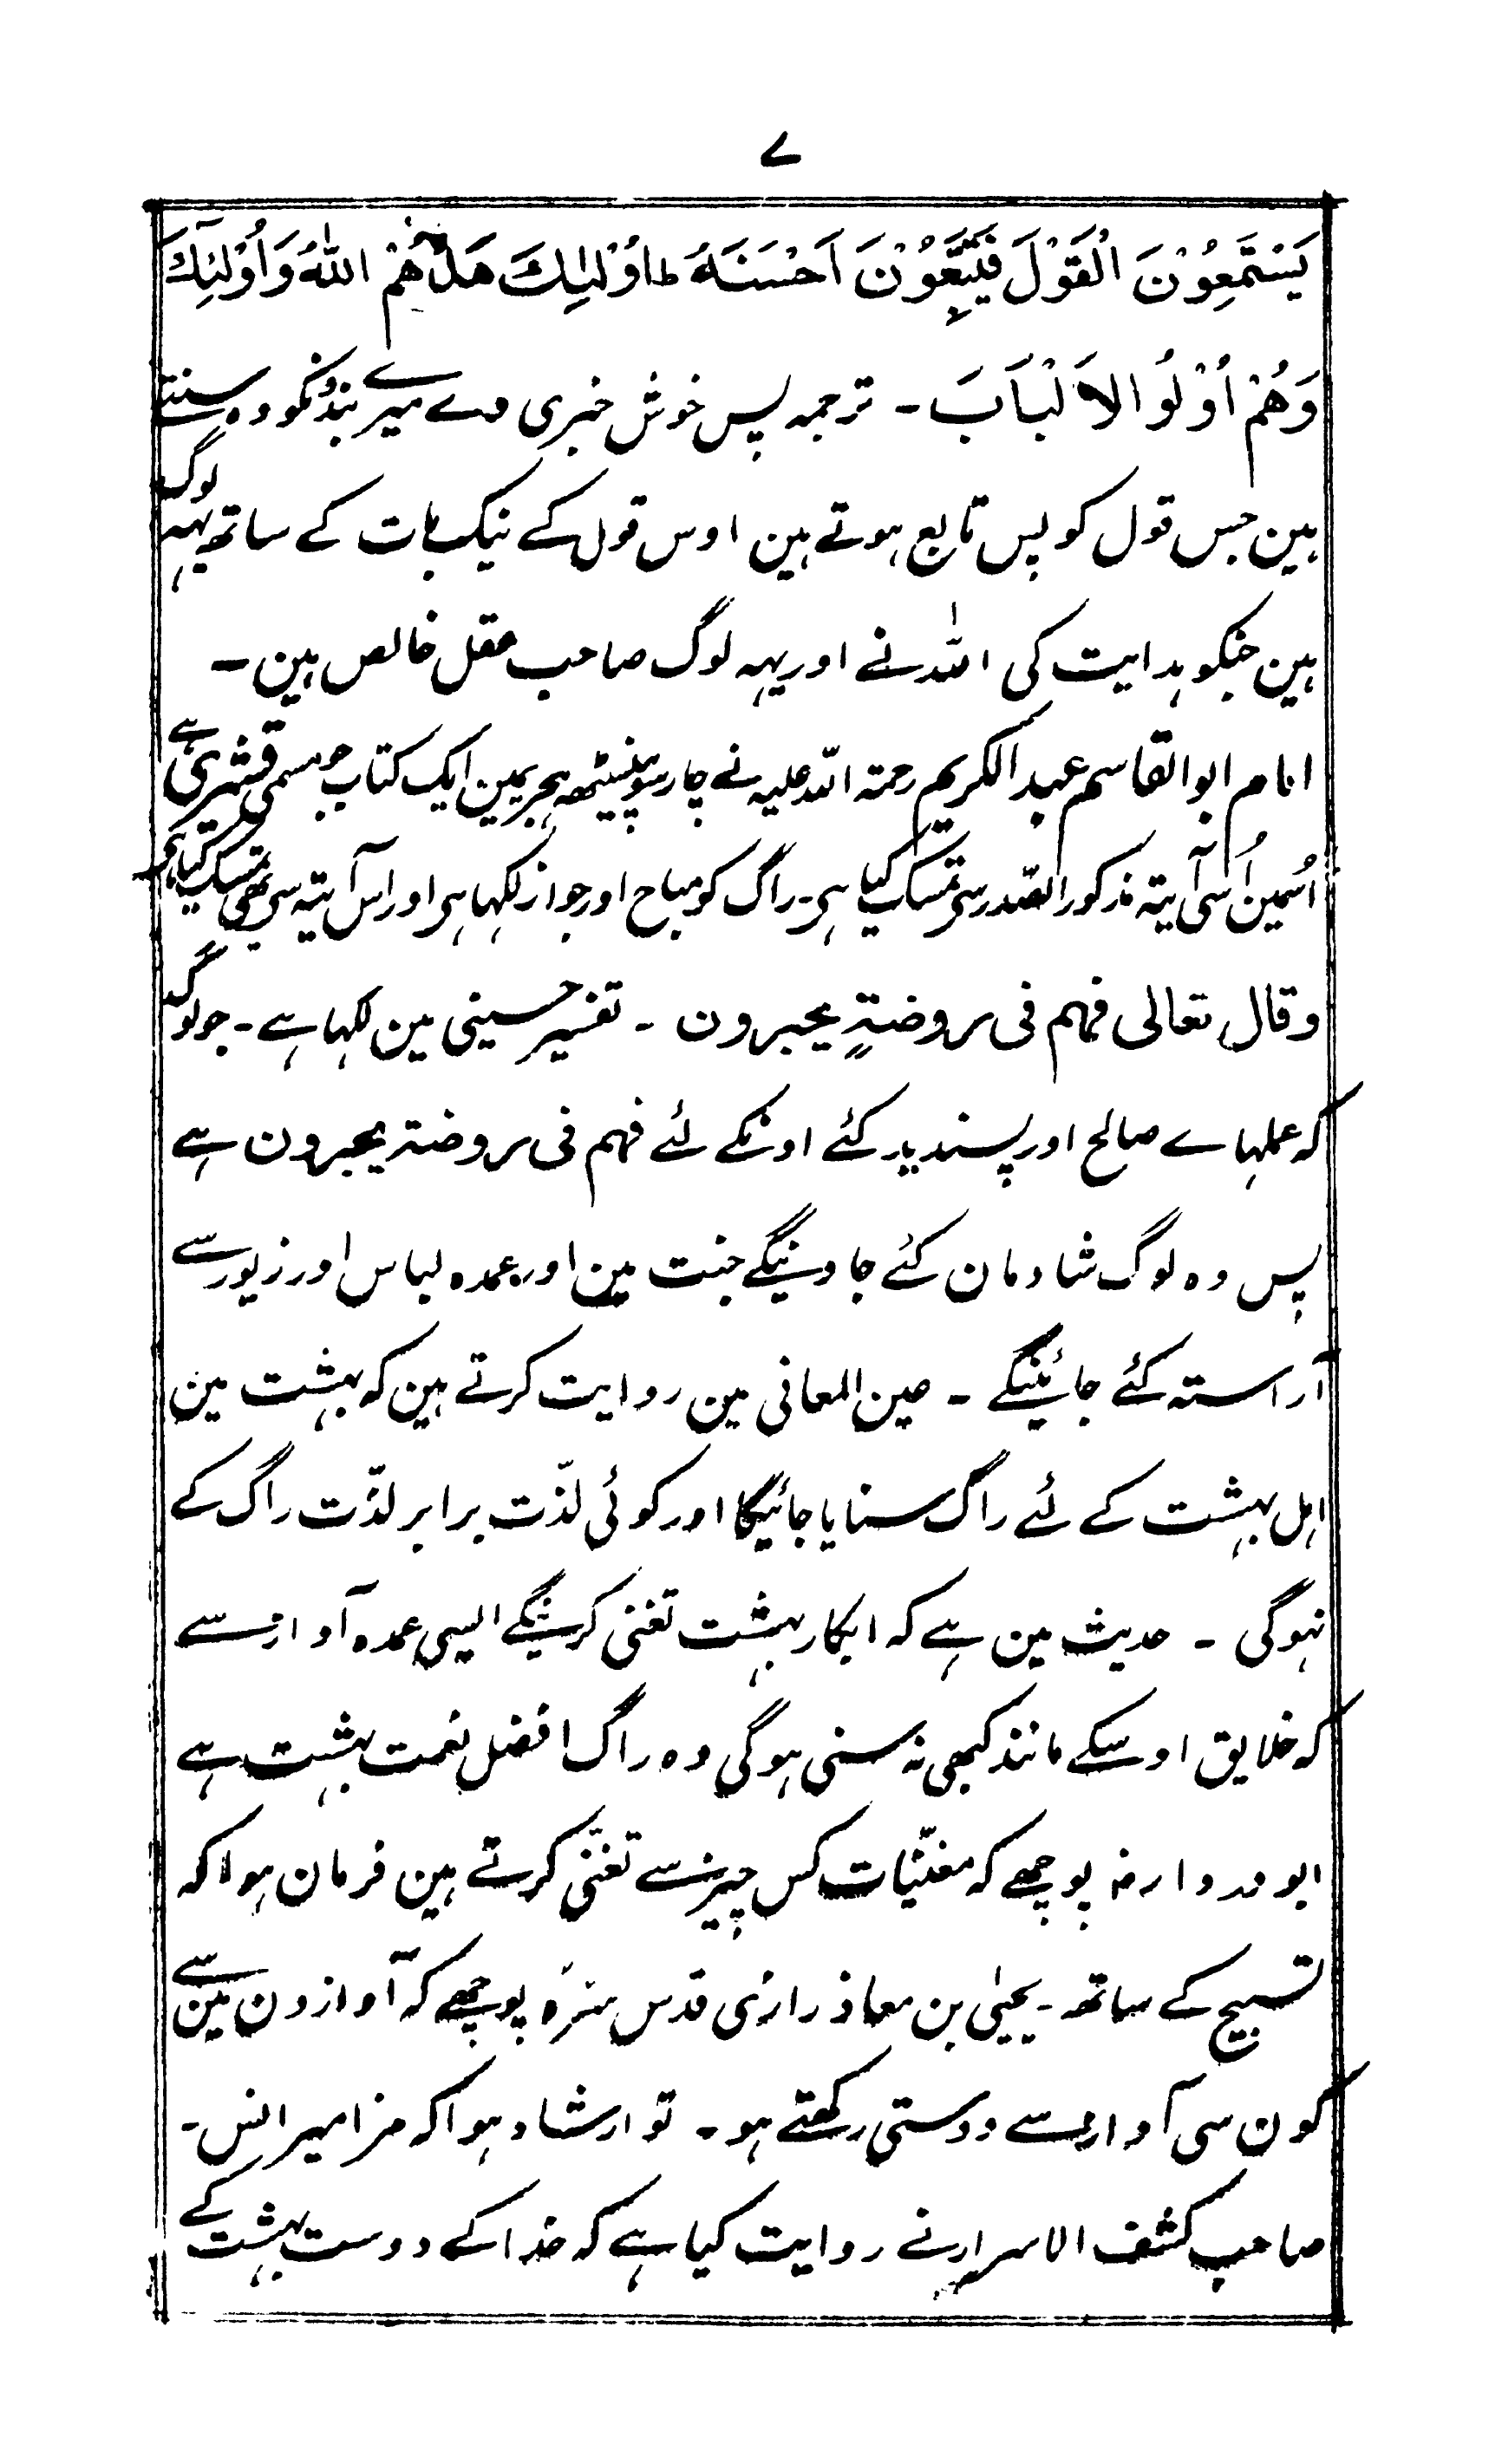 ۷
يَسْتَمِعُوْنَ الْقَوْلَ فَيَتَّبِعُوْنَ اَحْسَنَهُ ط اُوْلٰئِكَ هَدٰهُمُ اللّٰهُ وَاُوْلٰئِكَ
وَهُمْ اُوْلُوا الاَلْبَابَ ۔ ترجمہ پس خوش خبری دے میرے بندونکو وہ سنتے
ہین جس قول کو پس تابع ہوتے ہین اوس قول کے نیک بات کے ساتھ یہہ لوگ
ہین جنکو ہدایت کی اللّٰہ نے اور یہہ لوگ صاحب عقل خالص ہین ۔
امام ابو القاسم عبد الکریم رحمۃ اللّہ علیہ نے چار سو پینسٹھہ ہجریمین ایک کتاب جو مسمی قشیری ہے
اُسمین اُسی آیتہ مذکور الصّدر سی تمسک کیا ہی ۔ راگ کو مباح اور جواز لکہا ہی اور اس آیتہ سی بھی تمسک کیا ہی
وقال تعالی فہم فی روضۃٍ یحبرون ۔ تفسیر حسینی مین لکہا ہے ۔ جو لوگ
کہ عملہاے صالح اور پسندیدہ کئے اونکے لئے فہم فی روضۃ یحبرون ہے
پس وہ لوگ شادمان کئے جاوینگے جنت مین اور عمدہ لباس اور زیور سے
آراستہ کئے جائینگے ۔ عین المعانی مین روایت کرتے ہین کہ بہشت مین
اہل بہشت کے لئے راگ سنایا جائیگا اور کوئی لذّت برابر لذّت راگ کے
نہوگی ۔ حدیث مین ہے کہ ابکار بہشت تغنی کرینگے ایسی عمدہ آواز سے
کہ خلایق اوسکے مانند کبھی نہ سنی ہوگی وہ راگ افضل نعمت بہشت ہے
ابو دردا رضہ پوچھے کہ مغنّیات کس چیز سے تغنّی کرتے ہین فرمان ہوا کہ
تسبیح کے ساتھ ۔ یحیٰی بن معاذ رازی قدس سرّہ پوچھے کہ آوازون مین سے
کون سی آواز سے دوستی رکھتے ہو ۔ تو ارشاد ہوا کہ مزامیر انس ۔
صاحب کشف الاسرار نے روایت کیا ہے کہ خدا کے دوست بہشت کے